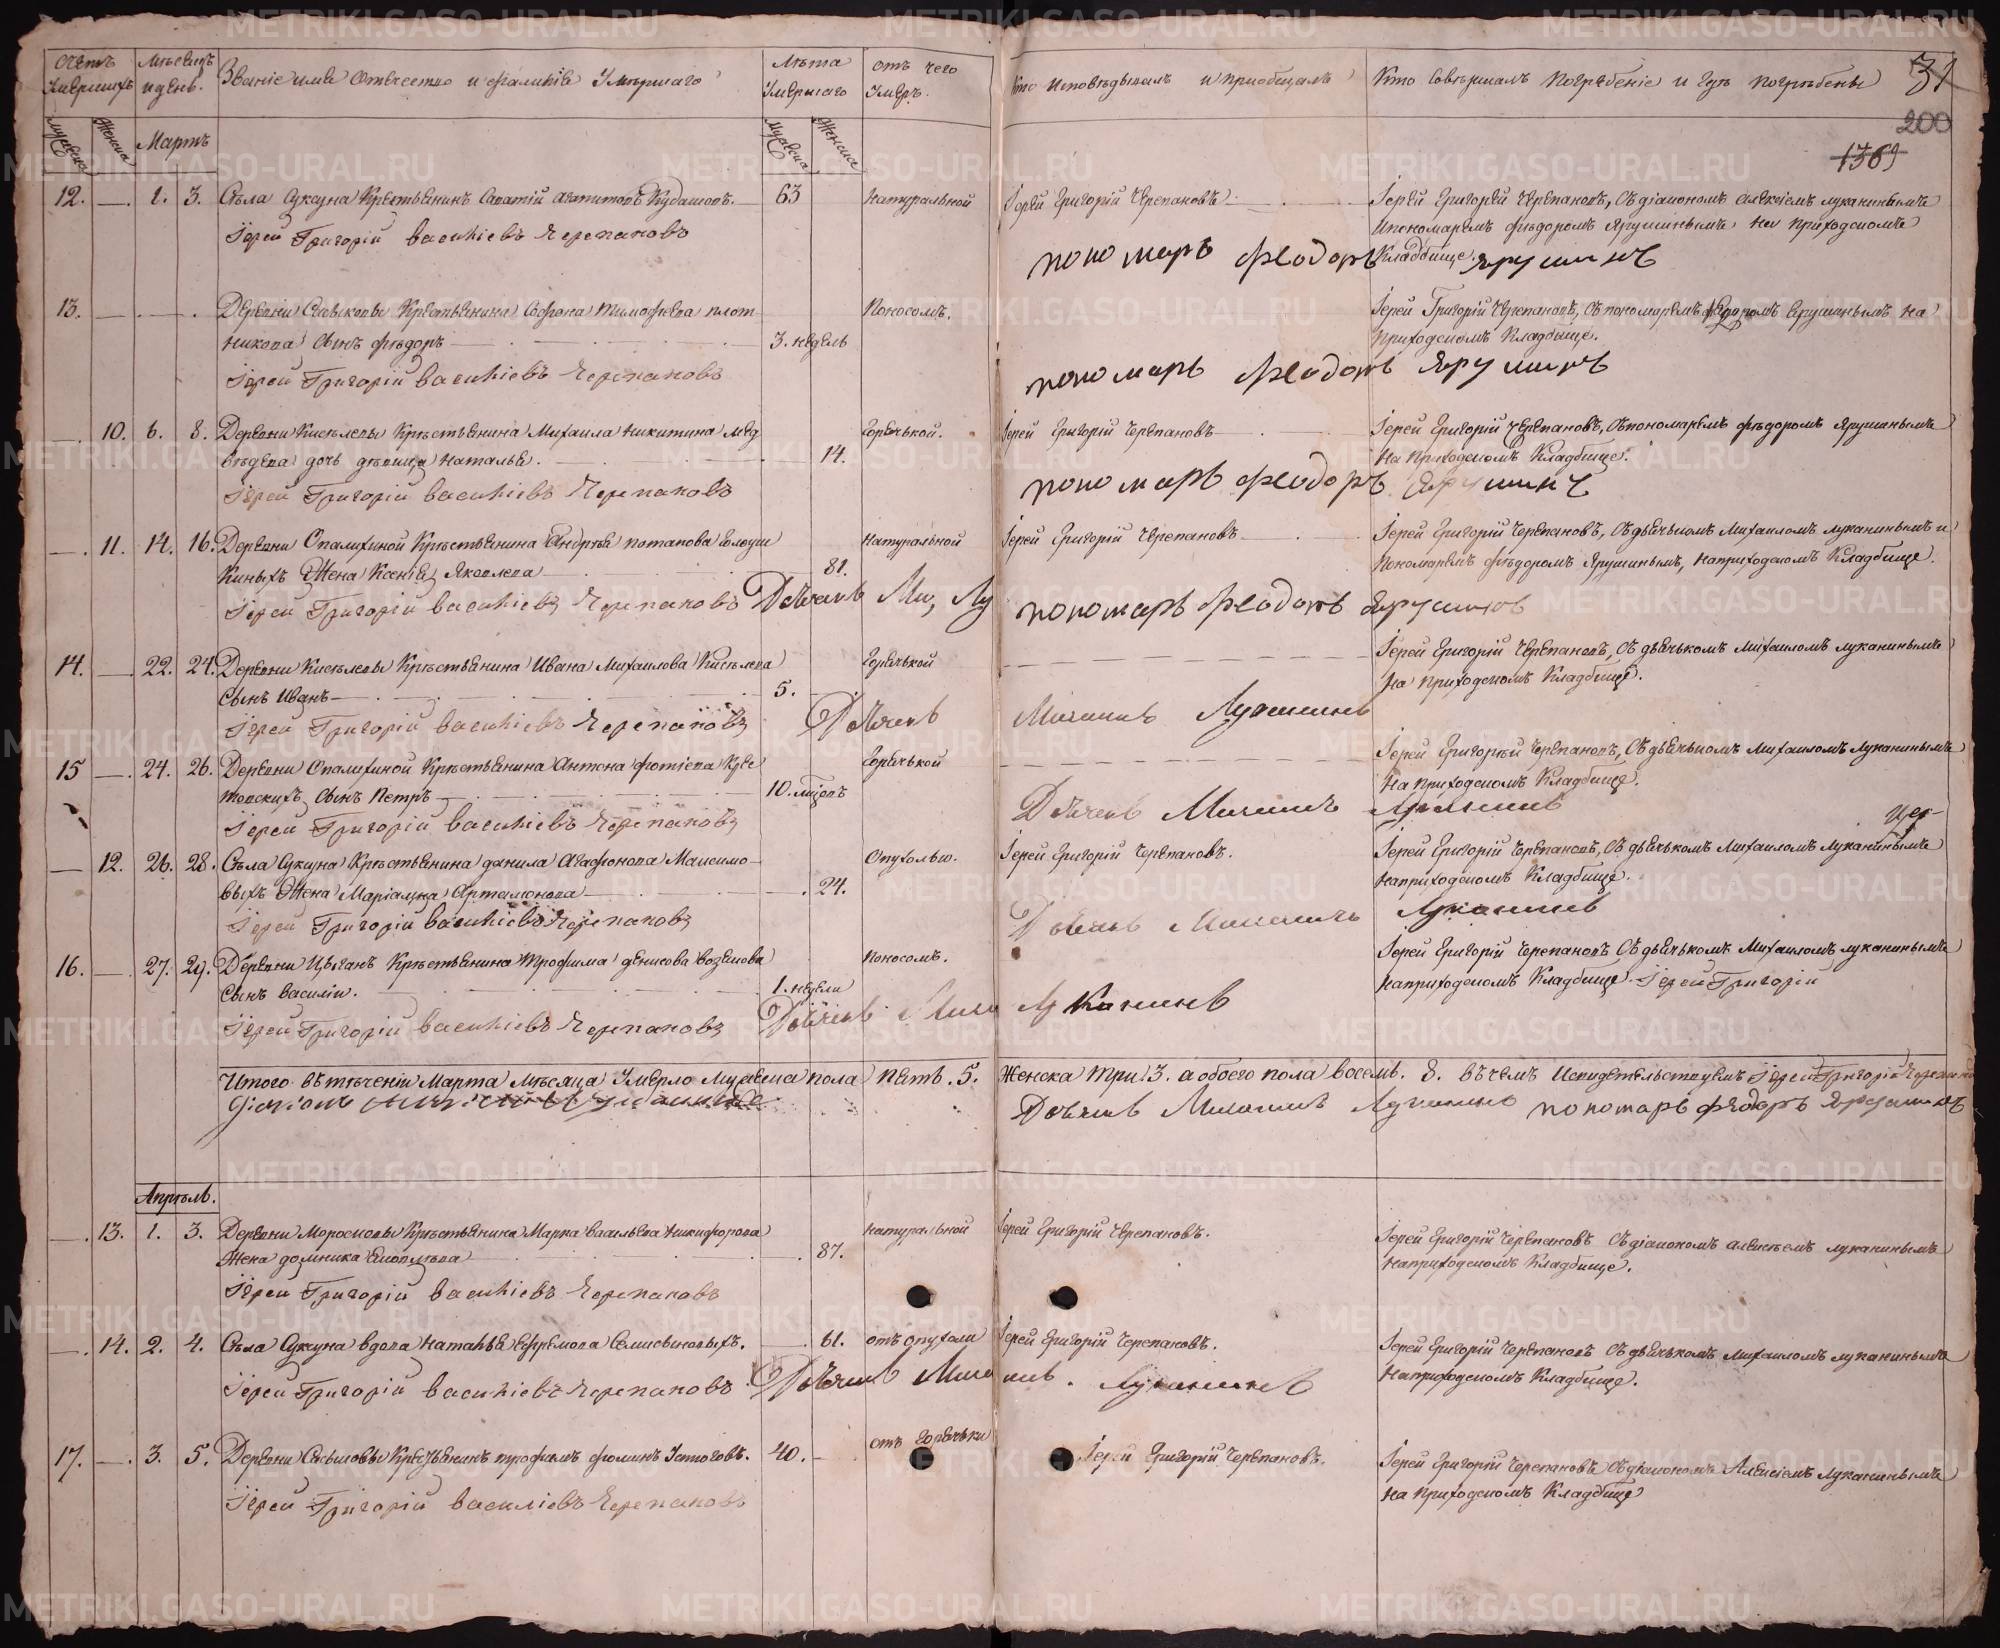 Счетъ Умершихъ
Мѣсяцъ и день.
Званіе имя Отечество и фамилія Умершаго
Лѣта Умершаго
отъ чего Умеръ.
Кто Исповѣдывалъ и приобщалъ
Кто Совершалъ Погребеніе и гдѣ погребены
31
200
1369
Мужеска
Женска
Мартъ
Мужеска
Женска
12. 1. 3. Села Суксуна Крестьянинъ 63 Натуральной Іерей Григорій Черепановъ
Іерей Григорій Черепановъ, Съ діакономъ Алексіемъ Луканинымъ
Ипономаремъ Федоромъ Ярушинымъ на приходскомъ
Кладбище
Іерей Григорій Васильевъ Черепановъ
пономарь Феодоръ Ярушинъ
13. Деревни Крестьянина Софона Тимофеева плот
никова Сынъ Федоръ 3. недель Поносомъ.
Іерей Григорій Черепановъ, Съ пономаремъ Федоромъ Ярушинымъ На
Приходскомъ Кладбище.
Іерей Григорій Васильевъ Черепановъ
пономарь Феодоръ Ярушинъ
10. 6. 8. Деревни Киселевы Крестьянина Михаила Никитина Мед
вѣдева дочь девица Наталья. 14. Горячькой. Іерей Григорій Черепановъ
Іерей Григорій Черепановъ, Съ пономаремъ Федоромъ Ярушинымъ
На приходскомъ Кладбище.
Іерей Григорій Васильевъ Черепановъ
пономарь Феодоръ Ярушинъ
11. 14. 16. Деревни Опалихиной Крестьянина Андрея Потапова
Жена Ксенія Яковлева 81. Натуральной Іерей Григорій Черепановъ
Іерей Григорій Черепановъ, Съ дьячькомъ Михаиломъ Луканинымъ и
Пономаремъ Федоромъ Ярушинымъ, на приходскомъ Кладбище.
Іерей Григорій Васильевъ Черепановъ Дьячекъ Ми, Лу
пономарь Феодоръ Ярушинъ
14. 22. 24. Деревни Киселевы Крестьянина Ивана Михаилова Киселева
Сынъ Иванъ 5. Горячькой
Іерей Григорій Черепановъ, Съ дьячькомъ Михаиломъ Луканинымъ
На приходскомъ Кладбище.
Іерей Григорій Васильевъ Черепановъ Дьячекъ Михаилъ Луканинъ
15 24. 26. Деревни Опалихиной Крестьянина Антона Фотіева
Сынъ Петръ 10. мцовъ Горячькой
Іерей Григорьи Черепановъ, Съ дьячькомъ Михаиломъ Луканинымъ
На приходскомъ Кладбище.
Іерей Григорій Васильевъ Черепановъ Дьячекъ Михаилъ Луканинъ
12. 26. 28. Села Суксуна Крестьянина Данила Агафонова Максимо
выхъ Жена Маріамна Артамонова 24. Опухолью. Іерей Григорій Черепановъ.
Іерей Григорій Черепановъ, Съ дьячькомъ Михаиломъ Луканинымъ
На приходскомъ Кладбище.
Іерей Григорій Васильевъ Черепановъ Дьячекъ Михаилъ Луканинъ
16. 27. 29. Деревни Цыганъ Крестьянина Трофима Денисова
Сынъ Василіи. 1. недели Поносомъ.
Іерей Григорій Черепановъ Съ дьячькомъ Михаиломъ Луканинымъ
На приходскомъ Кладбище. Іерей Григорій
Іерей Григорій Васильевъ Черепановъ Дьячекъ Луканинъ
Итого въ теченіи Марта Мѣсяца Умерло Мужеска пола Пять. 5. Женска Три 3. а обоего пола восемь. 8. въ чемъ Исвидетельствуемъ Іерей Григорій
Діаконъ Дьячекъ Михаилъ Луканинъ пономарь Федоръ Ярушинъ
Апрель.
13. 1. 3. Деревни Крестьянина Марка Васильева Никифорова
Жена Домника 87. Натуральной Іерей Григорій Черепановъ.
Іерей Григорій Черепановъ Съ діакономъ Алексѣемъ Луканинымъ
На приходскомъ Кладбище.
Іерей Григорій Васильевъ Черепановъ
14. 2. 4. Села Суксуна вдова Наталья Ефремова 61. отъ опухоли Іерей Григорій Черепановъ.
Іерей Григорій Черепановъ Съ дьячькомъ Михаиломъ Луканинымъ
На приходскомъ Кладбище.
Іерей Григорій Васильевъ Черепановъ Дьячекъ Михаилъ. Луканинъ
17. 3. 5. Деревни Крестьянинъ Трофимъ Фоминъ 40. отъ горячьки Іерей Григорій Черепановъ.
Іерей Григорій Черепановъ Съ діакономъ Алексіемъ Луканинымъ
На приходскомъ Кладбище
Іерей Григорій Василіевъ Черепановъ
METRIKI.GASO-URAL.RU